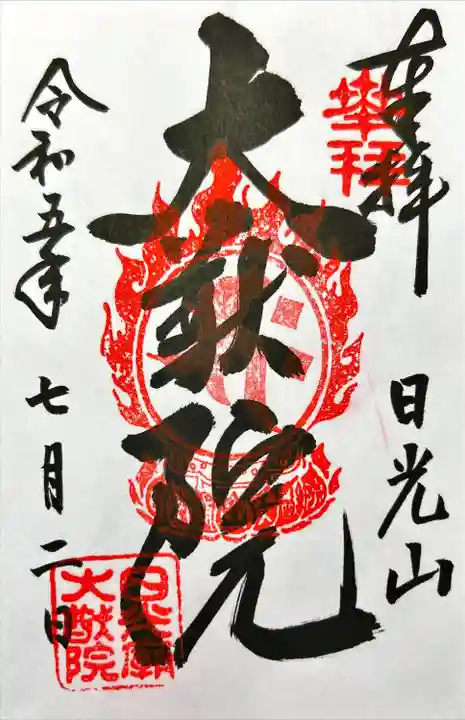 奉拝
奉拝
日光山
大猷院
令和五年七月二日
日光廟
大猷院